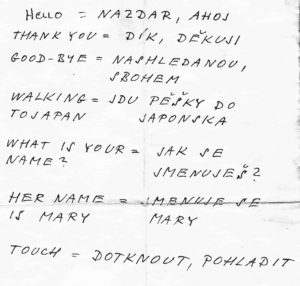 Hello = NAZDAR, AHOJ
THANK YOU = DÍK, DĚKUJI
GOOD-BYE = NASHLEDANOU,
SBOHEM
WALKING = JDU PĚŠKY DO
TOJAPAN JAPONSKA
WHAT IS YOUR = JAK SE
NAME? JMENUJEŠ?
HER NAME = JMENUJE SE
IS MARY MARY
TOUCH = DOTKNOUT, POHLADIT